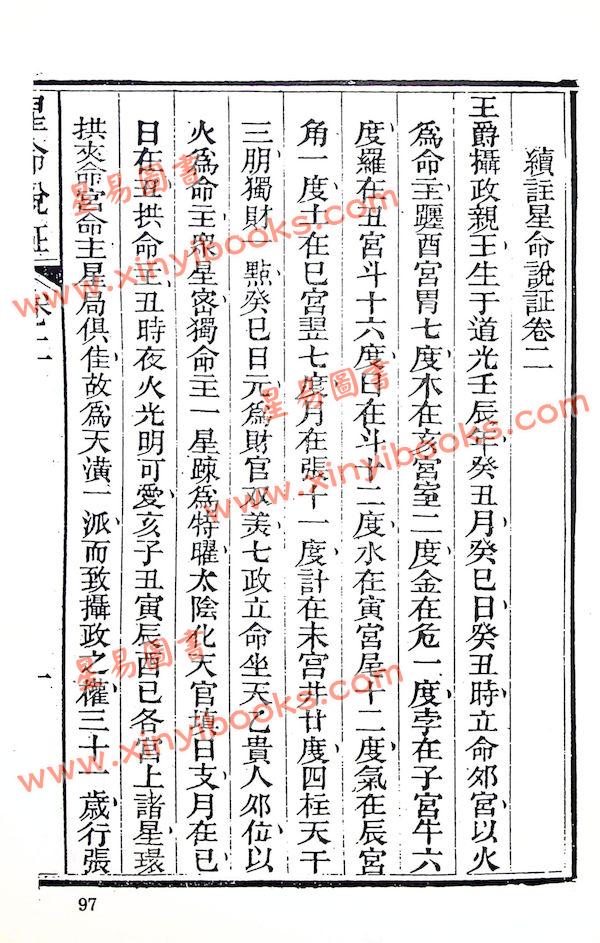 續註星命說証卷二
王爵攝政親王生于道光壬辰年癸丑月癸巳日癸丑時立命卯宮以火
為命主躔酉宮胃七度木在亥宮室二度金在危一度孛在子宮牛六
度羅在丑宮斗十六度日在斗十二度水在寅宮尾十二度氣在辰宮
角一度土在巳宮翌七度月在張十一度計在未宮井廿度四柱天干
三朋獨財一點癸巳日元為財官双美七政立命坐天乙貴人卯位以
火為命主眾星密獨命主一星疎為特曜太陰化天官填日支月在巳
日在丑拱命主丑時夜火光明可愛亥子丑寅辰酉巳各宮上諸星環
拱夾命宮命主星局俱佳故為天潢一派而致攝政之權三十一歲行張
星命說証 卷之二 一
97
星易圖書
www.xinyibooks.com
星易圖書
www.xinyibooks.com
星易圖書
www.xinyibooks.com